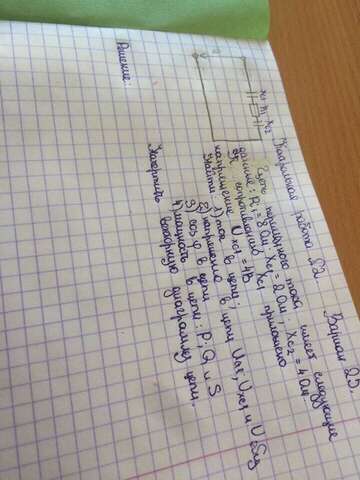 Контрольная работа №2.
Вариант 25.
Xc1 R1 Xc2
U
Цепь переменного тока имеет следующие
данные: R1 = 8 Ом, Xc1 = 2 Ом, Xc2 = 4 Ом
К сопротивлению Xc1 приложено
напряжение Uxc1 = 4В
Найти: 1) ток в цепи;
2) напряжение в цепи UR, Uxc1 и U
3) cos φ в цепи
4) мощность в цепи: P, Q и S
Начертить векторную диаграмму цепи.
Решение: